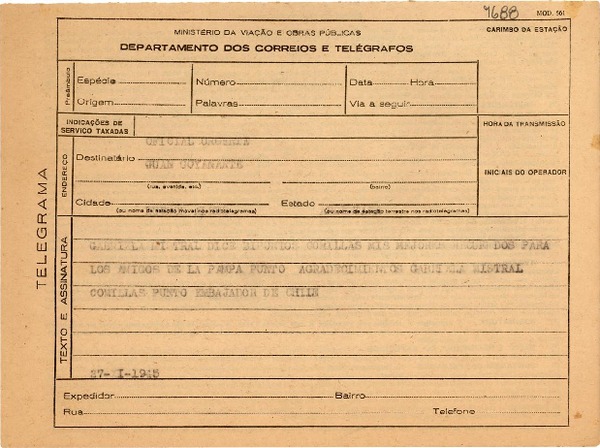 9688
MOD. 561
MINISTÉRIO DA VIAÇÃO E OBRAS PÚBLICAS
DEPARTAMENTO DOS CORREIOS E TELÉGRAFOS
CARIMBO DA ESTAÇÃO
Preâmbulo
Espécie Número Data Hora
Origem Palavras Via a seguir
INDICAÇÕES DE
SERVIÇO TAXADAS
HORA DA TRANSMISSÃO
OFICIAL URGENTE
ENDEREÇO
Destinatário
JUAN GOYANARTE
INICIAIS DO OPERADOR
(rua, avenida, etc.) (bairro)
Cidade Estado
(ou nome da estação movel nos radiotelegramas) (ou nome da estação terrestre nos radiotelegramas)
TELEGRAMA
TEXTO E ASSINATURA
GABRIELA MISTRAL DICE DIPUNTOS COMILLAS MIS MEJORES RECUERDOS PARA
LOS AMIGOS DE LA PAMPA PUNTO AGRADECIMIENTOS GABRIELA MISTRAL
COMILLAS PUNTO EMBAJADOR DE CHILE
27-XI-1945
Expedidor Bairro
Rua Telefone